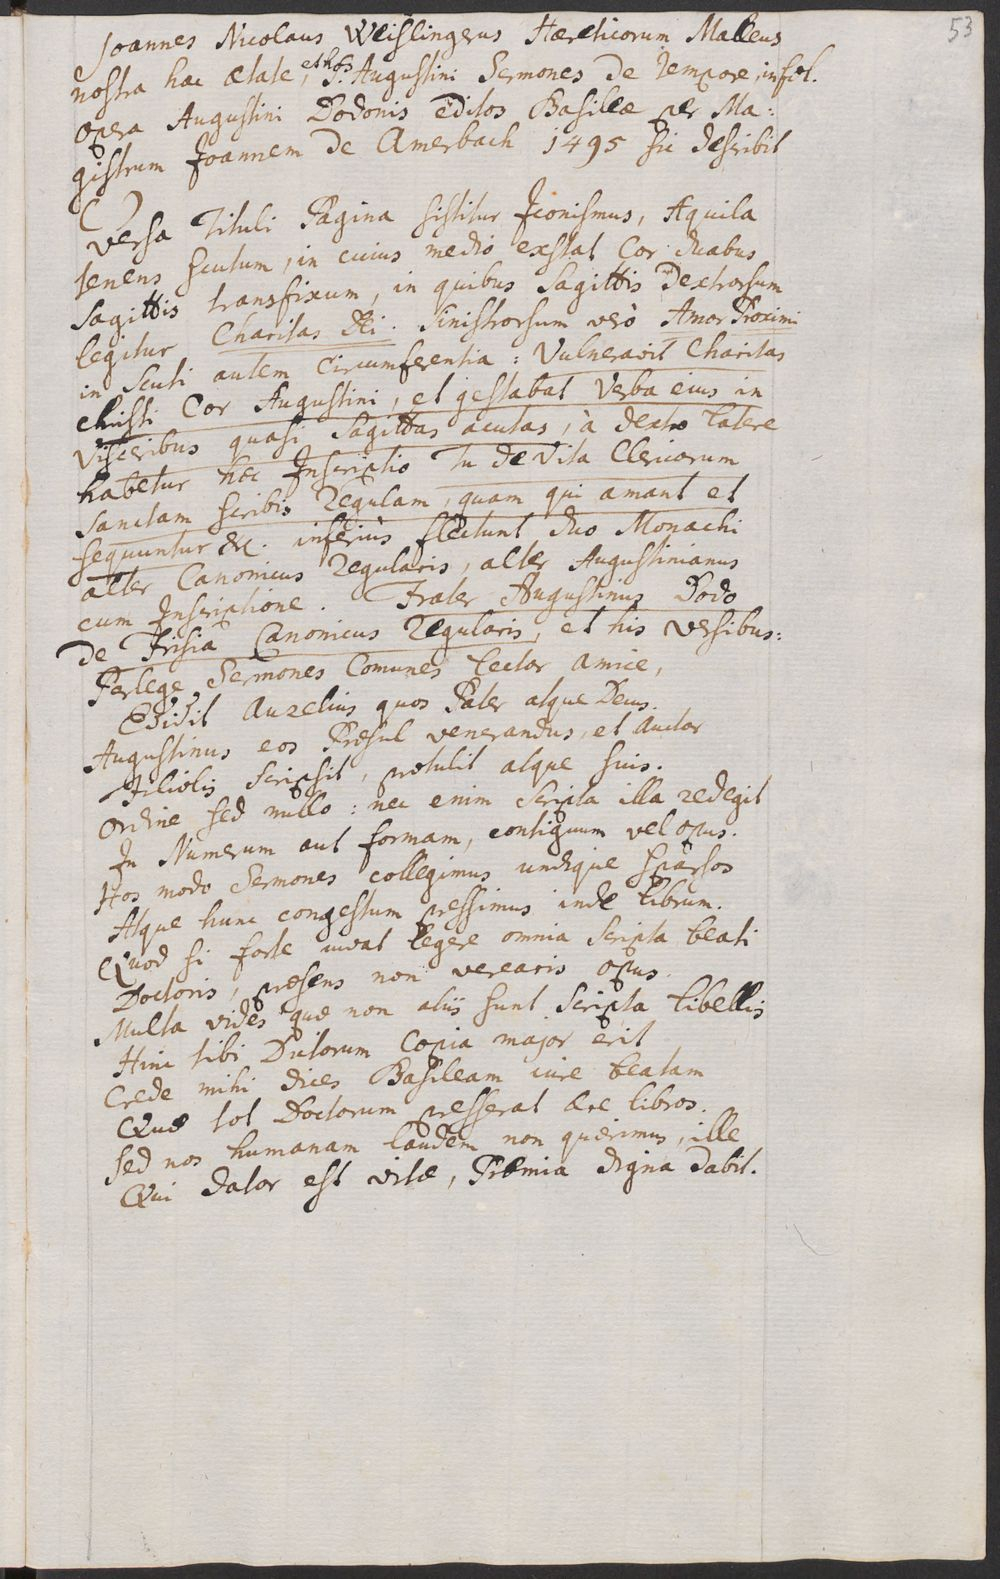 53
Joannes Nicolaus Weislingerus Hæreticorum Malleus
nostra hac ætate, et hos S. Augustini Sermones De Tempore, in fol.
opera Augustini Dodonis editos Basileæ per Ma:
gistrum Joannem De Amerbach 1495 sic describit
Versa Tituli Pagina sistitur Iconismus, Aquila
tenens scutum, in cuius medio exstat Cor duabus
Sagittis transfixum, in quibus Sagittis Dextrorsum
legitur Charitas Dei. Sinistrorsum verò Amor Proximi
in scuti autem Circumferentia: Vulneravit Charitas
Christi Cor Augustini, et gestabat Verba eius in
Visceribus quasi Sagittas acutas, à dextro latere
habetur hæc Inscriptio Tu de Vita Clericorum
Sanctam scribis Regulam, quam qui amant et
sequuntur &c. inferiùs flectunt duo Monachi
alter Canonicus Regularis, alter Augustinianus
cum Inscriptione. Frater Augustinus Dodo
De Frisia Canonicus Regularis, et his versibus:
Perlege Sermones Comunes lector amice,
Edidit Aurelius quos Pater atque Deus.
Augustinus eos Præsul venerandus, et Auctor
Filiolis scripsit, protulit atque suis.
Ordine sed nullo: nec enim scripta illa redegit
In Numerum aut formam, contiguum vel opus.
Hos modo Sermones collegimus undique sparsos
Atque hunc congestum pressimus inde librum.
Quod si forte iuvat legere omnia scripta beati
Doctoris, præsens non verearis opus.
Multa vides quæ non aliis sunt scripta libellis
Hinc tibi Dictorum Copia major erit
Crede mihi dices Basileam iure beatam
Quæ tot Doctorum presserat ære libros.
Sed nos humanam laudem non quærimus, ille
Qui dator est vitæ, Præmia digna dabit.